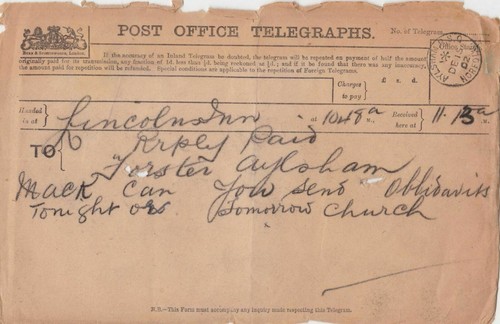 POST OFFICE TELEGRAPHS.
No. of Telegram
If the accuracy of an Inland Telegram be doubted, the telegram will be repeated on payment of half the amount
originally paid for its transmission, any fraction of 1d. less than ½d. being reckoned as ½d.; and if it be found that there was any inaccuracy,
the amount paid for repetition will be refunded. Special conditions are applicable to the repetition of Foreign Telegrams.
Office Stamp
AYLSHAM
DE
02
Charges to pay
£ s. d.
Handed in at
Lincolns Inn
at 10.48 a M.,
Received here at
11.13 a M.
TO
Reply Paid
Forster Aylsham
Mack can you send
Tonight or Tomorrow Church
N.B.—This Form must accompany any inquiry made respecting this Telegram.